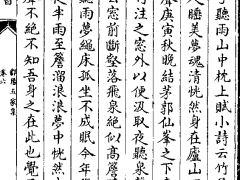 聽雨山中枕上賦小詩云竹
人睡美夢魂清恍然身在廬山
聲庚寅秋晚結茅郭仙峯之下
行注之窓外以便汲取夜聽泉
云窓前斷壑落飛泉絶似高
雨夢繩床孤坐不成眠今年
半雨至簷溜浪浪夢中恍然
不絶不知吾身之在此也覺
鄱陽五家集